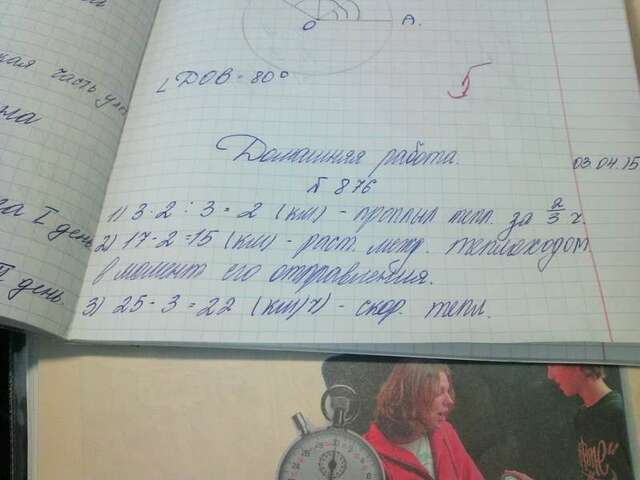 O A.
кая часть
∠DOB = 80°
5
Домашняя работа.
03.04.15
№ 876
1) 3·2 : 3 = 2 (км) - проплыл тепл. за 2/3 ч.
2) 17-2=15 (км) - раст. межд. теплоходом
в момент его отправления.
3) 25-3=22 (км/ч) - скор. тепл.
за I день
II день.